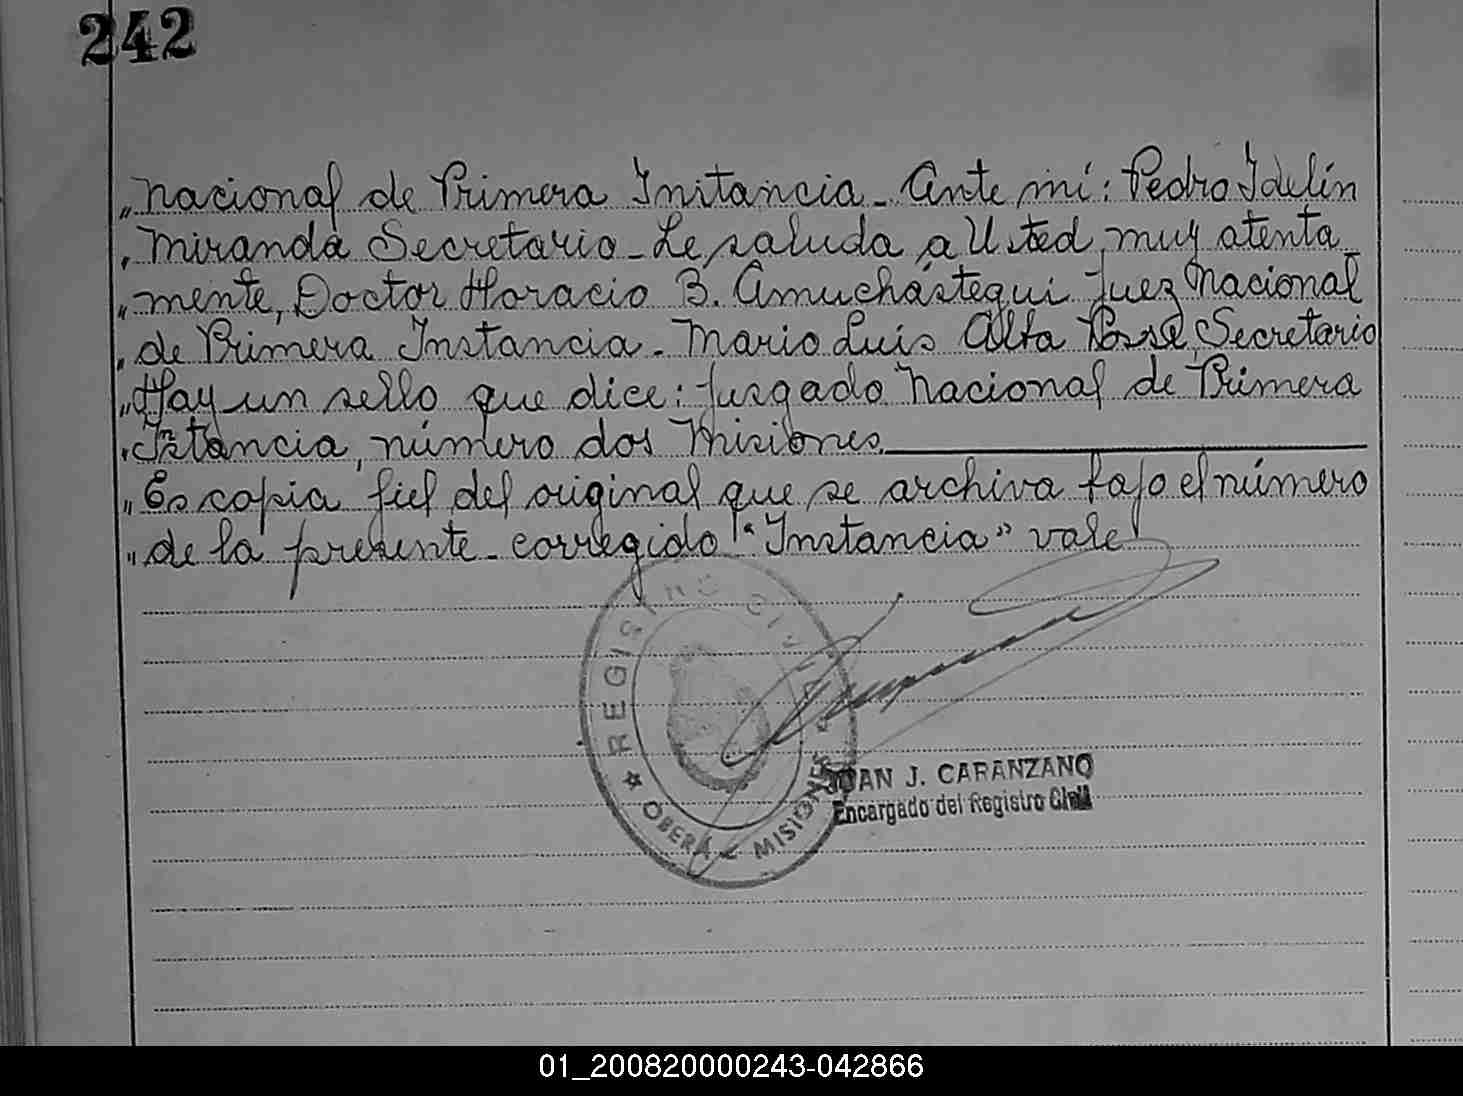 242
„ Nacional de Primera Instancia_ Ante mí: Pedro Idelín
„ Miranda Secretario_ Le saluda a Usted muy atenta
„ mente, Doctor Horacio B. Amuchástegui Juez Nacional
„ de Primera Instancia_ Mario Luis Alta Posse, Secretario
„ Hay un sello que dice: Juzgado Nacional de Primera
„ Instancia, número dos Misiones.
„ Es copia fiel del original que se archiva bajo el número
„ de la presente_ corregido "Instancia" vale
REGISTRO CIVIL
★ OBERÁ - MISIONES
JUAN J. CARANZANO
Encargado del Registro Civil
01_200820000243-042866